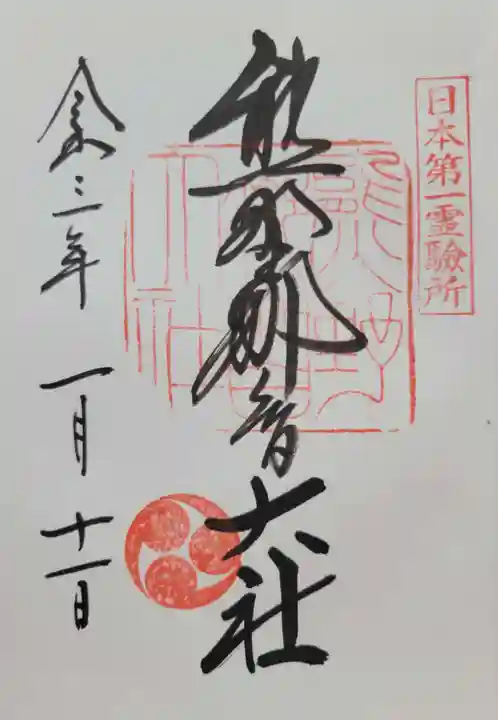 日本第一霊驗所
熊野那智大社
令和三年 一月十一日